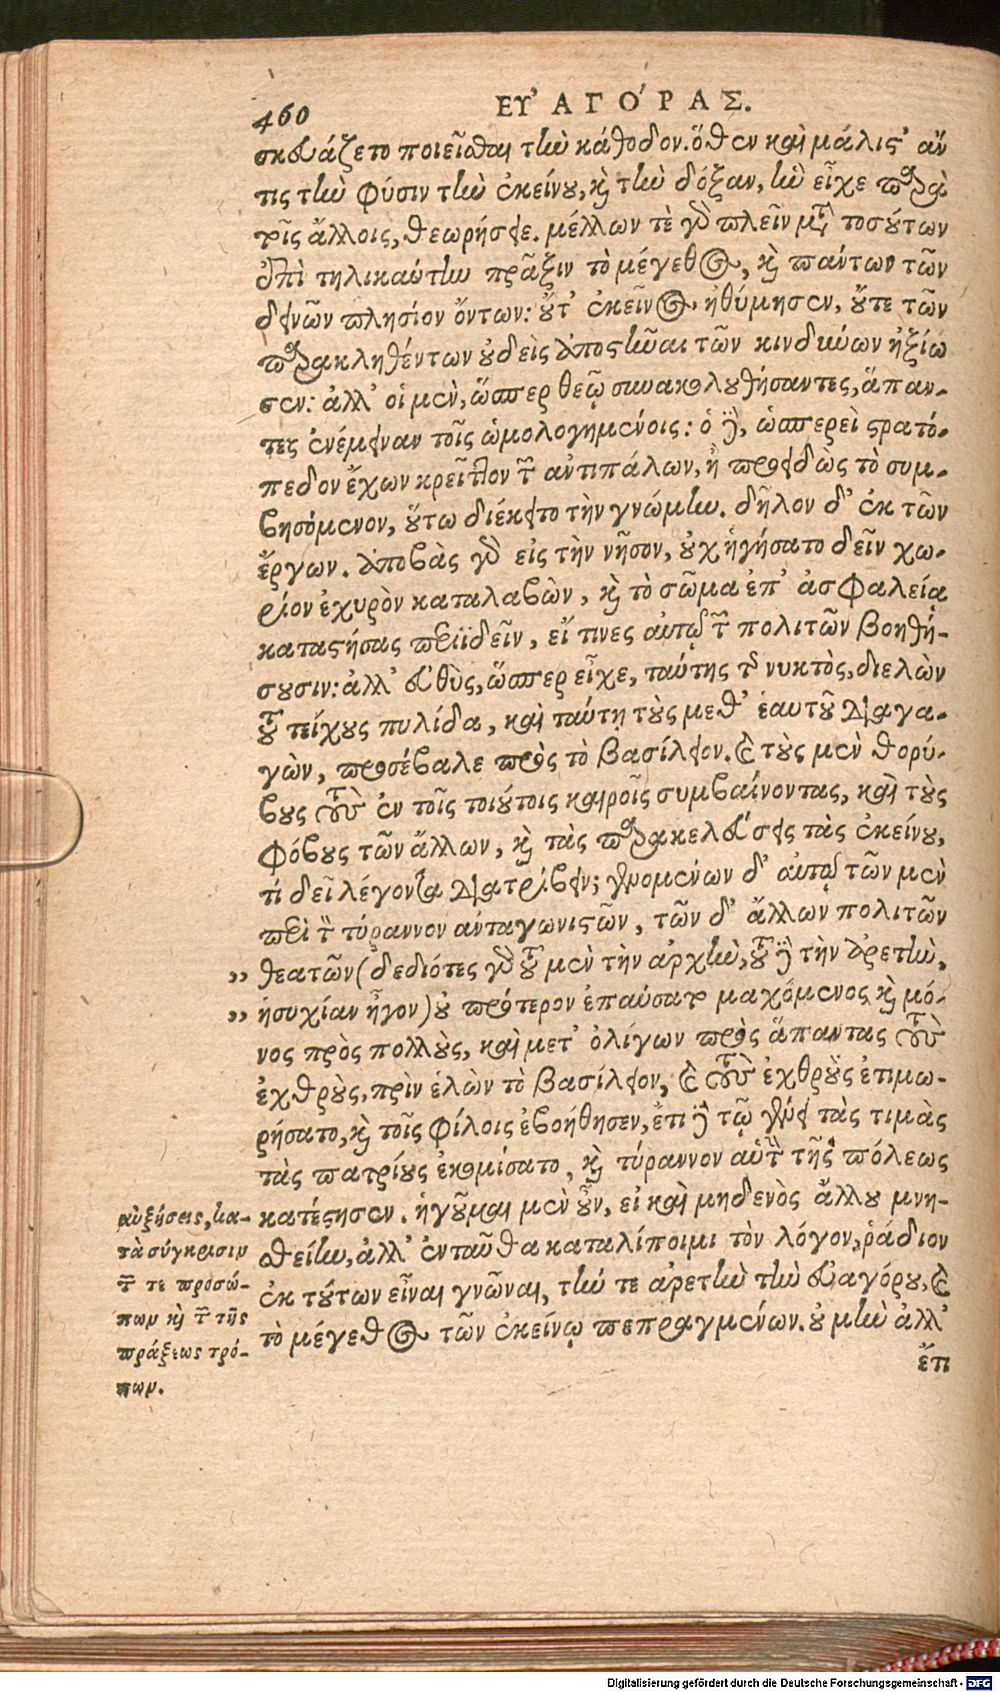 460
ΕΥ̓ΑΓΌΡΑΣ.
σκευάζετο ποιεῖσθαι τὴν κάθοδον. ὅθεν καὶ μάλιστ' ἄν
τις τὴν φύσιν τὴν ἐκείνου, καὶ τὴν δόξαν, ἣν εἶχε παρὰ
τοῖς ἄλλοις, θεωρήσειε. μέλλων τὲ γὰρ πλεῖν μετὰ τοσούτων
ἐπὶ τηλικαύτην πρᾶξιν τὸ μέγεθος, καὶ πάντων τῶν
δεινῶν πλησίον ὄντων: οὔτ' ἐκεῖνος ἠθύμησεν, οὔτε τῶν
παρακληθέντων οὐδεὶς ἀποστῆναι τῶν κινδύνων ἠξίω
σεν: ἀλλ' οἱ μὲν, ὥσπερ θεῷ συνακολουθήσαντες, ἅπαν-
τες ἐνέμειναν τοῖς ὡμολογημένοις: ὁ δὲ, ὡσπερεὶ στρατό-
πεδον ἔχων κρεῖττον τῶν ἀντιπάλων, ἢ προειδὼς τὸ συμ-
βησόμενον, οὕτω διέκειτο τὴν γνώμην. δῆλον δ' ἐκ τῶν
ἔργων. ἀποβὰς γὰρ εἰς τὴν νῆσον, οὐχ ἡγήσατο δεῖν χω-
ρίον ἐχυρὸν καταλαβὼν, καὶ τὸ σῶμα ἐπ' ἀσφαλείᾳ
καταστήσας περιϊδεῖν, εἴ τινες αὐτῷ τῶν πολιτῶν βοηθή-
σουσιν: ἀλλ' εὐθὺς, ὥσπερ εἶχε, ταύτης τῆς νυκτὸς, διελὼν
τοῦ τείχους πυλίδα, καὶ ταύτῃ τοὺς μεθ' ἑαυτοῦ διαγα-
γὼν, προσέβαλε πρὸς τὸ βασίλειον. καὶ τοὺς μὲν θορύ-
βους τοὺς ἐν τοῖς τοιούτοις καιροῖς συμβαίνοντας, καὶ τοὺς
φόβους τῶν ἄλλων, καὶ τὰς παρακελεύσεις τὰς ἐκείνου,
τί δεῖ λέγοντα διατρίβειν; γενομένων δ' αὐτῷ τῶν μὲν
περὶ τὸν τύραννον ἀνταγωνιστῶν, τῶν δ' ἄλλων πολιτῶν
,, θεατῶν (δεδιότες γὰρ τοῦ μὲν τὴν ἀρχὴν, τοῦ δὲ τὴν ἀρετὴν,
,, ἡσυχίαν ἦγον) οὐ πρότερον ἐπαύσατο μαχόμενος, καὶ μό-
νος πρὸς πολλοὺς, καὶ μετ' ὀλίγων πρὸς ἅπαντας τοὺς
ἐχθροὺς, πρὶν ἑλὼν τὸ βασίλειον, καὶ τοὺς ἐχθροὺς ἐτιμω-
ρήσατο, καὶ τοῖς φίλοις ἐβοήθησεν, ἔτι δὲ τῷ γένει τὰς τιμὰς
τὰς πατρίους ἐκομίσατο, καὶ τύραννον αὑτὸν τῆς πόλεως
κατέστησεν. ἡγοῦμαι μὲν οὖν, εἰ καὶ μηδενὸς ἄλλου μνη-
θείην, ἀλλ' ἐνταῦθα καταλίποιμι τὸν λόγον, ῥάδιον
ἐκ τούτων εἶναι γνῶναι, τήν τε ἀρετὴν τὴν εὐαγόρου, καὶ
τὸ μέγεθος τῶν ἐκείνῳ πεπραγμένων. οὐ μὴν ἀλλ'
ἔπι
αὐξήσεις, κα-
τὰ σύγκρισιν
τῶν τε προσώ-
πων καὶ τῶν τῆς
πράξεως τρό-
πων.
Digitalisierung gefördert durch die Deutsche Forschungsgemeinschaft - DFG